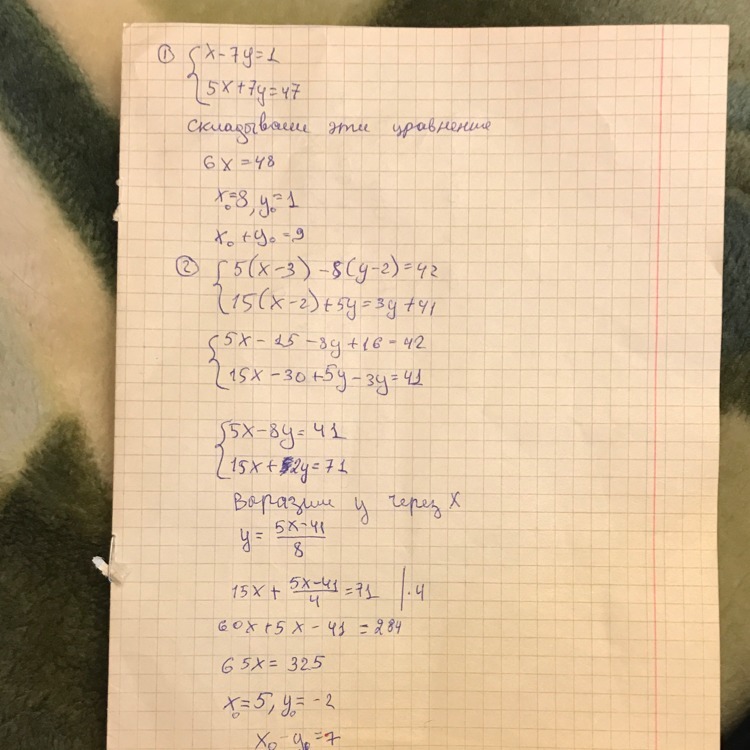 ① { x - 7y = 1
5x + 7y = 47
складываем эти уравнение
6x = 48
x₀ = 8, y₀ = 1
x₀ + y₀ = 9
② { 5(x - 3) - 8(y - 2) = 42
15(x - 2) + 5y = 3y + 41
{ 5x - 15 - 8y + 16 = 42
15x - 30 + 5y - 3y = 41
{ 5x - 8y = 41
15x + 2y = 71
Воразим y через x
y = (5x - 41)/8
15x + (5x - 41)/4 = 71 | · 4
60x + 5x - 41 = 284
65x = 325
x₀ = 5, y₀ = -2
x₀ - y₀ = 7